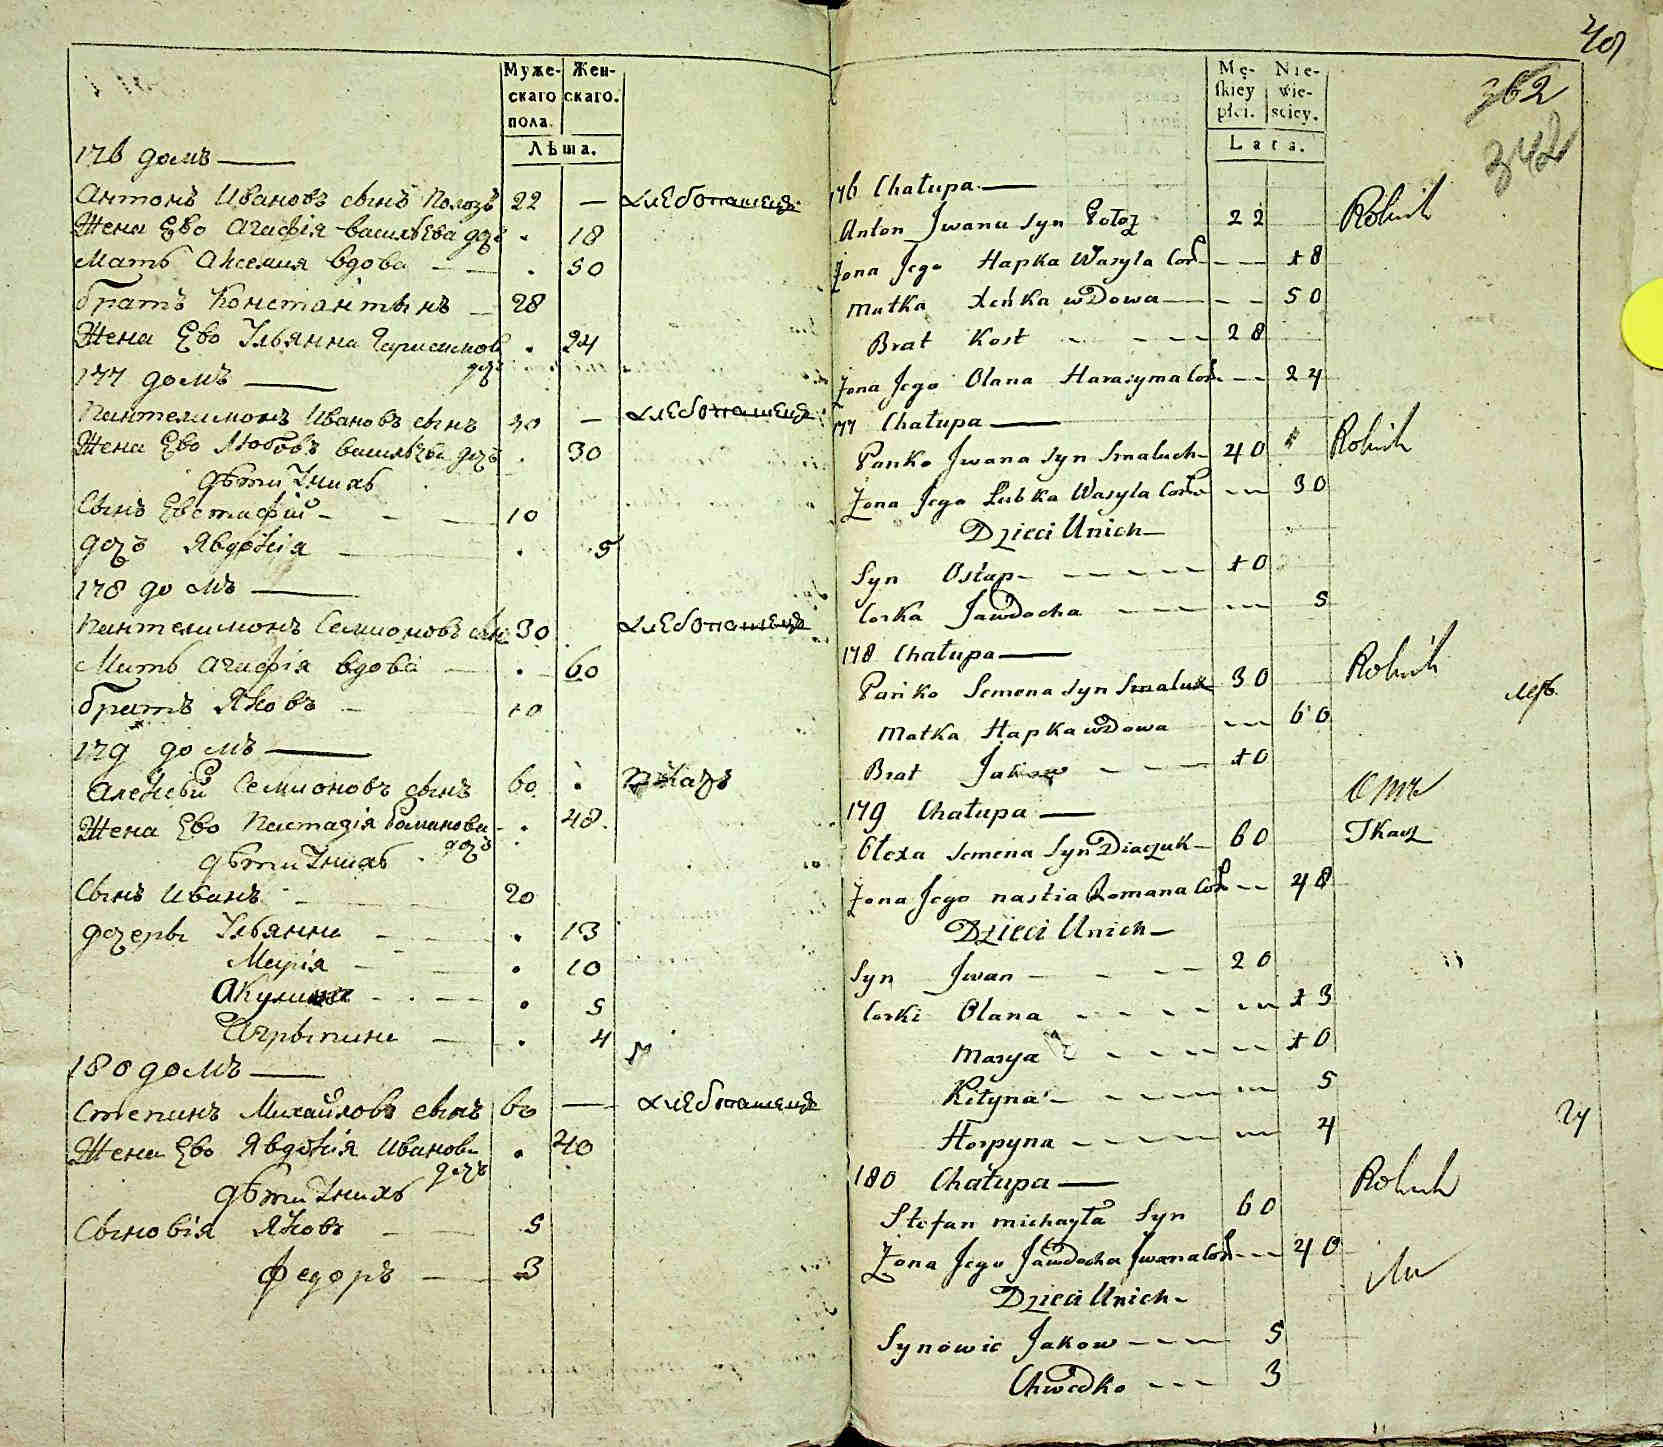 Муже- Жен-
скаго скаго.
пола.
Лѣта.
176 домъ
Антонъ Ивановъ сынъ Полозъ 22 — хлебопашецъ
Жена Ево Агафія васильева дочь . 18
Мать Аксения вдова . 50
братъ Константинъ 28
Жена Ево Ульянна Гарисимов . 24
дочь
177 домъ
Пантелимонъ Ивановъ сынъ 40 — хлебопашецъ
Жена Ево Любовъ васильева дочь . 30
дѣти Унихъ
Сынъ Евстафій 10
дочь Явдокія . 5
178 домъ
Пантелимонъ Семионовъ сынъ 30 хлебопашецъ
Мать Агафія вдова . 60
братъ Яковъ 10
179 домъ
Алексѣй Семионовъ сынъ 60 . ткачъ
Жена Ево Настазія Романова . 48
дочь
дѣти Унихъ
Сынъ Иванъ 20
дочеры Ульянна . 13
Марія . 10
Акулина . 5
Агрыпина . 4
180 домъ
Степанъ Михайловъ сынъ 60 — хлебопашецъ
Жена Ево Явдокія Иванова . 40
дочь
дѣти Унихъ
Сыновія Яковъ 5
Федоръ 3
40
362
342
Mę- Nie-
skiey wie-
płci. sciey.
Lata.
176 Chałupa
Anton Jwana Syn Połoz 22 Rolnik
Żona Jego Hapka Wasyla Cor 18
Matka Xeńka wDowa 50
Brat Kost 28
Żona Jego Olana Harasyma Cor 24
177 Chałupa
Pańko Jwana Syn Smaluch 40 Rolnik
Żona Jego Lubka Wasyla Corka 30
Dzieci Unich
Syn Ostap 10
Corka Jawdocha 5
178 Chałupa
Pańko Semena Syn Smaluk 30 Rolnik
Matka Hapka wDowa 60
Brat Jakow 10
179 Chałupa
Ołexa Semena Syn Diaczuk 60 Tkacz
Żona Jego nastia Romana Cor 48
Dzieci Unich
Syn Jwan 20
Corki Olana 13
Marya 10
Kiłyna 5
Horpyna 4
24
180 Chałupa Rolnik
Stefan michayła Syn 60
Żona Jego Jawdocha Jwana Cor 40
Dzieci Unich
Synowie Jakow 5
Chwedko 3